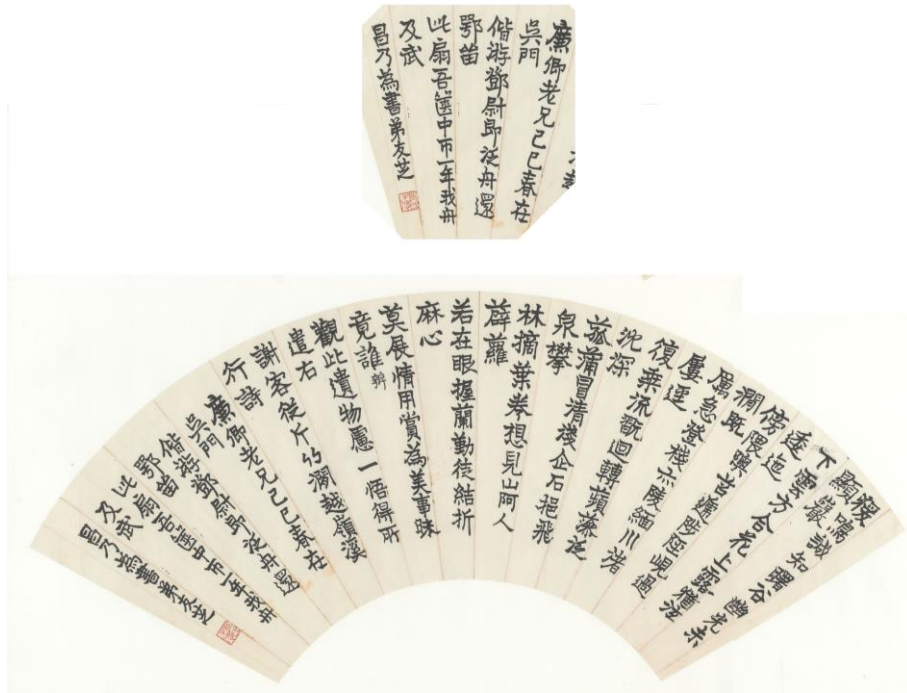 廉卿老兄己巳春在
吳門
偕游鄧尉即泛舟還
鄂留
此扇吾篋中帀一年我舟
及武
昌乃為書弟友芝
猨鳴誠知曙谷幽光未
顯巖
下雲方合花上露猶泫
逶迤
傍隈隩苕遰陟陘峴過
澗既
厲急登棧亦陵緬川渚
屢逕
復乘流翫迴轉蘋萍泛
沈深
菰蒲冒清淺企石挹飛
泉攀
林摘葉卷想見山阿人
薜蘿
若在眼握蘭勤徒結折
麻心
莫展情用賞為美事昧
竟誰辨
觀此遺物慮一悟得所
遣右
謝客從斤竹澗越嶺溪
行詩
廉卿老兄己巳春在
吳門
偕游鄧尉即泛舟還
鄂留
此扇吾篋中帀一年我舟
及武
昌乃為書弟友芝